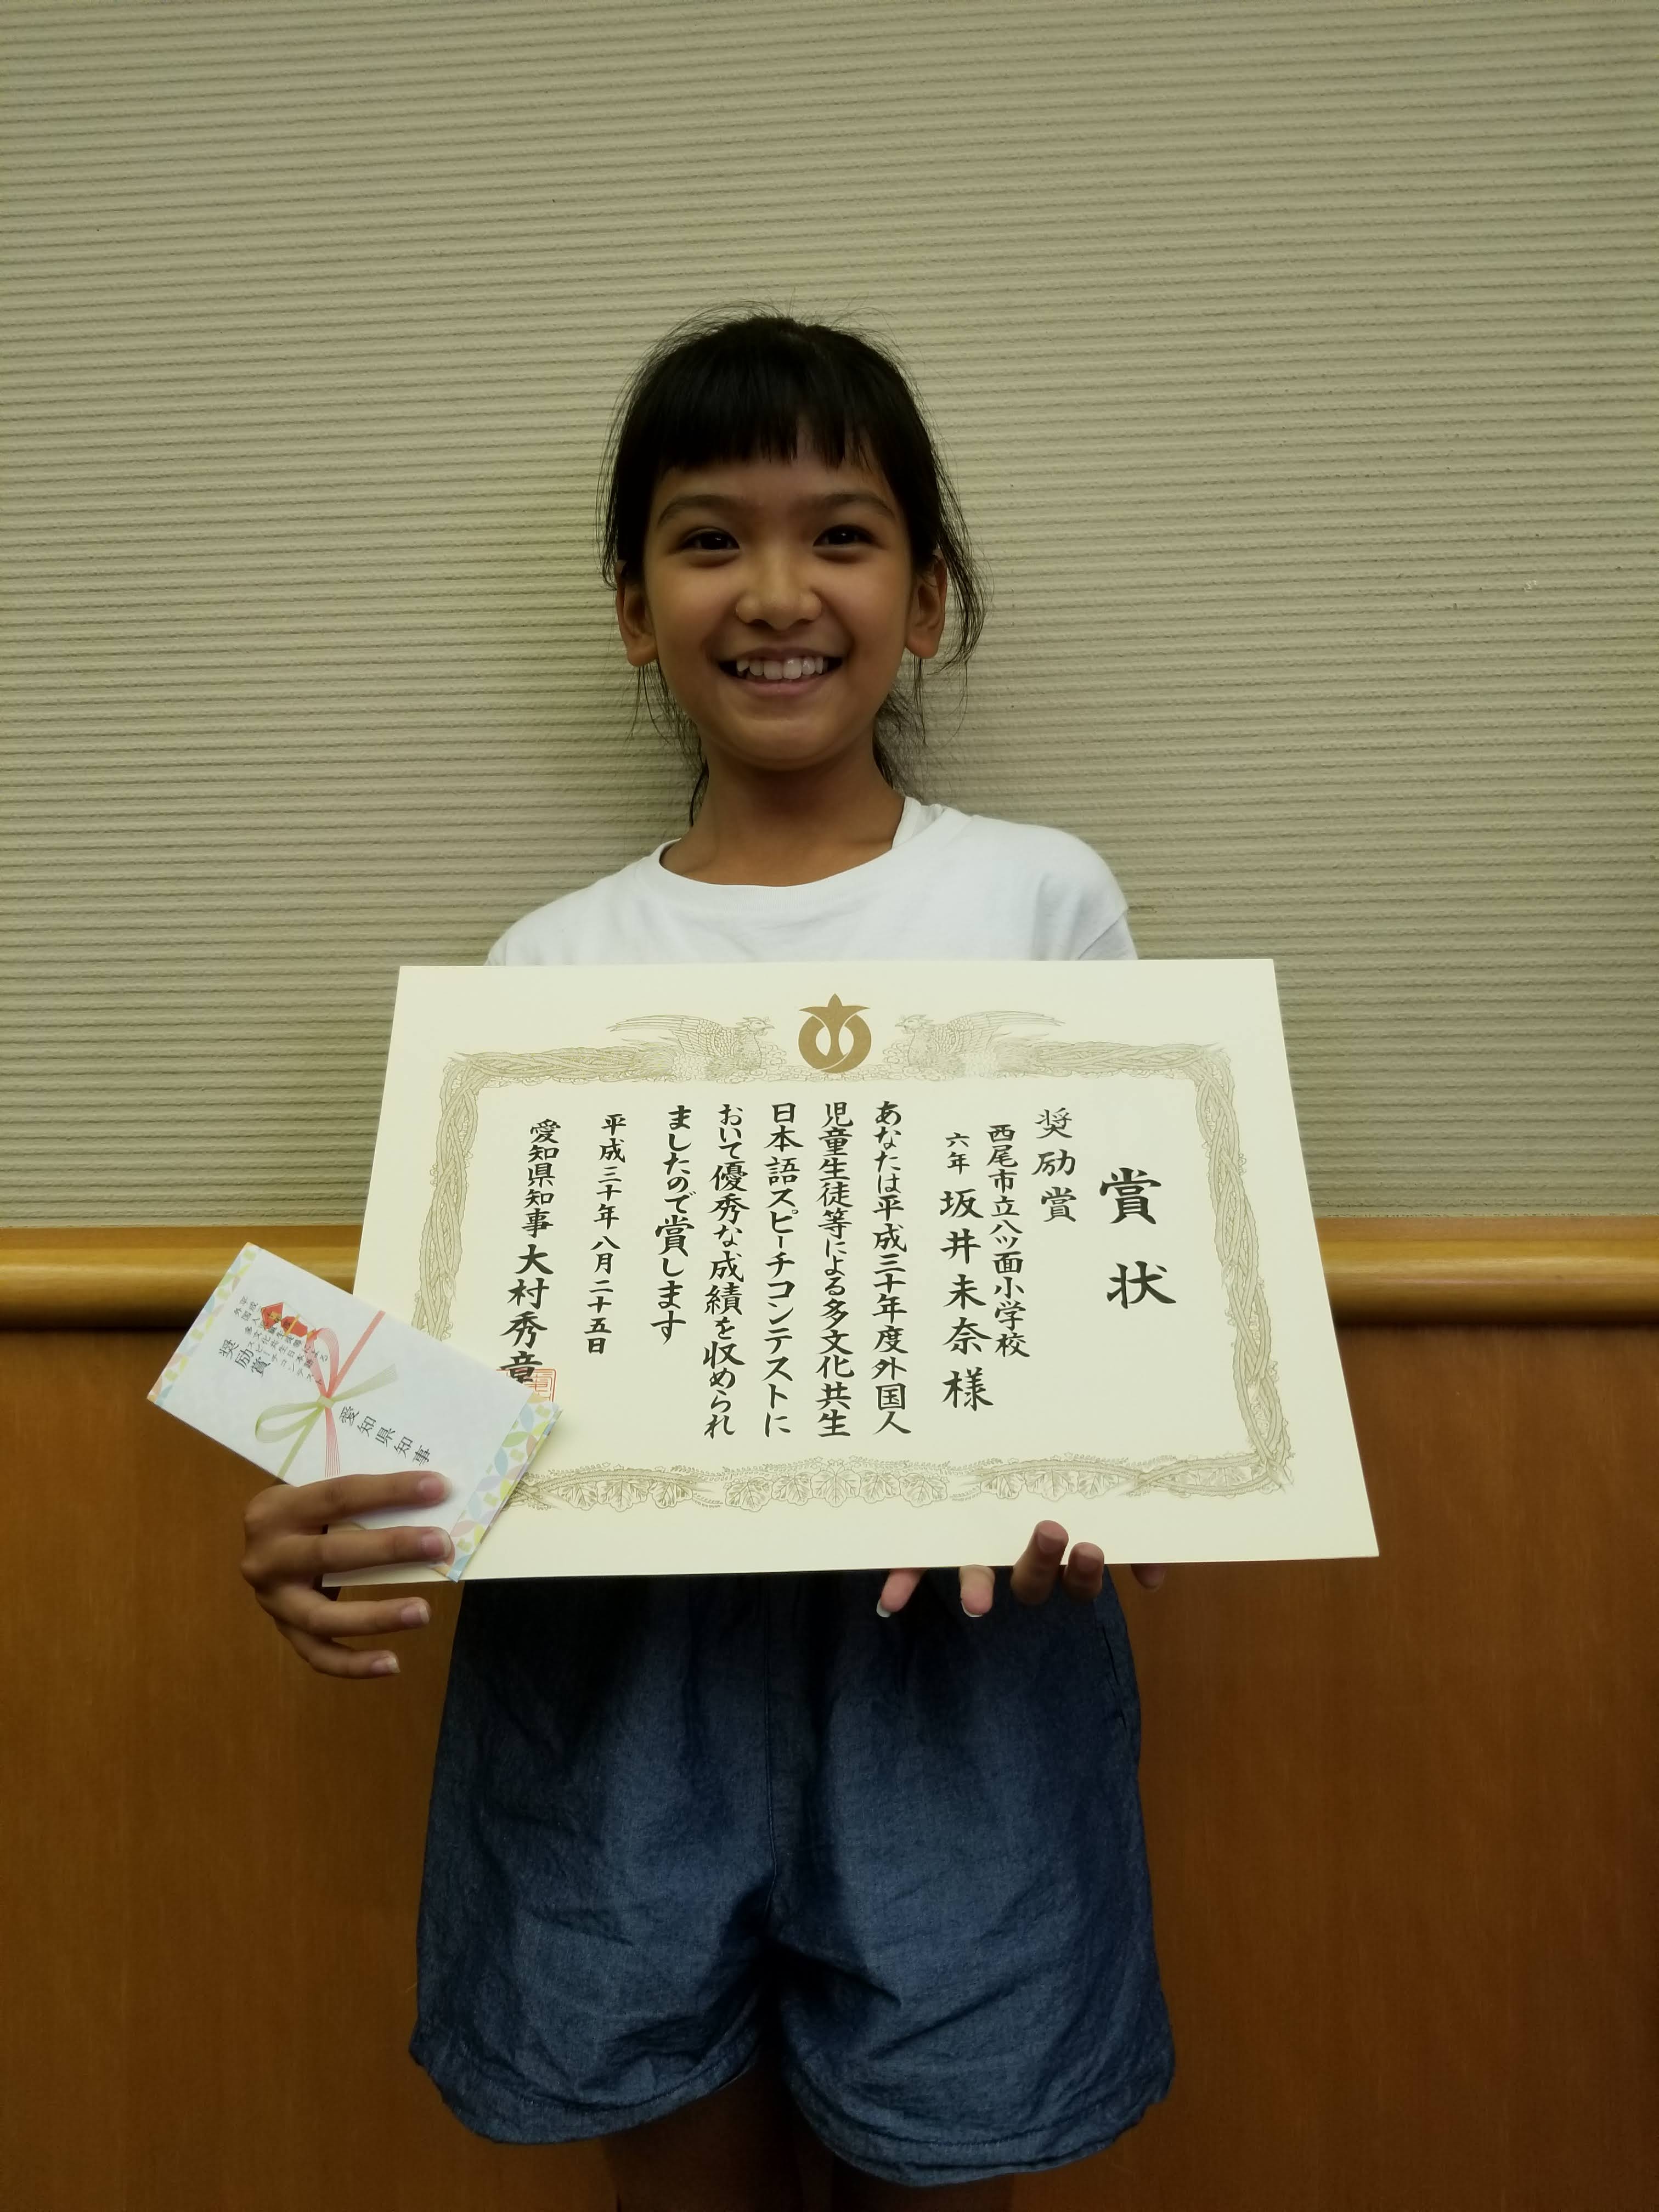 賞状
奨励賞
西尾市立八ツ面小学校
六年 坂井未奈様
あなたは平成三十年度外国人
児童生徒等による多文化共生
日本語スピーチコンテストに
おいて優秀な成績を収められ
ましたので賞します
平成三十年八月二十五日
愛知県知事 大村秀章
奨励賞
愛知県知事